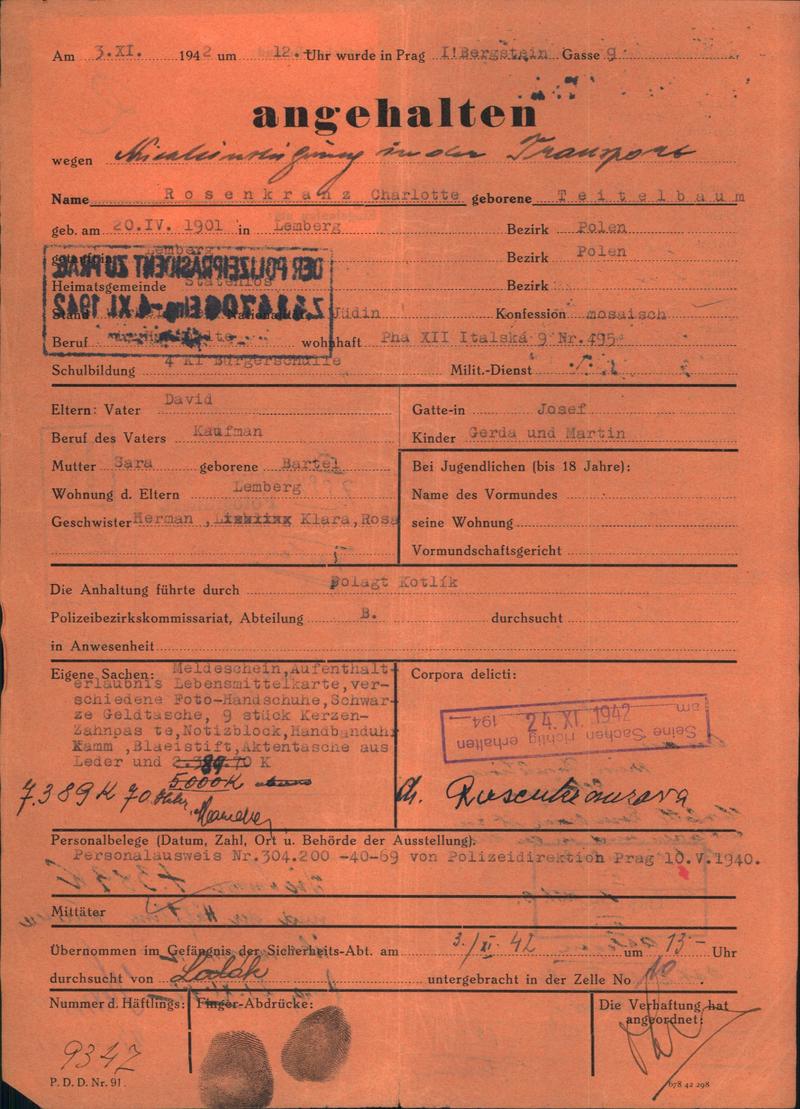 Am 3.XI. 1942 um 12. Uhr wurde in Prag I!Bergstein Gasse 9
angehalten
wegen in den Transport
Name Rosenkranz Charlotte geborene Teitelbaum
geb. am 20.IV. 1901 in Lemberg Bezirk Polen
Lemberg Bezirk Polen
Heimatsgemeinde Statenlos Bezirk
DER POLIZEIPRÄSIDENT ZU PRAG
Eing. -4. XI. 1942
Jüdin Konfession mosaisch
Beruf wohnhaft Pha XII Italská 9 Nr.495
Schulbildung 4 Kl Bürgerschulle Milit.-Dienst
Eltern: Vater David Gatte-in Josef
Beruf des Vaters Kaufman Kinder Gerda und Martin
Mutter Sara geborene Bartel Bei Jugendlichen (bis 18 Jahre):
Wohnung d. Eltern Lemberg Name des Vormundes
Geschwister Herman , Klara,Rosa seine Wohnung
Vormundschaftsgericht
Die Anhaltung führte durch Polagt Kotlík
Polizeibezirkskommissariat, Abteilung B. durchsucht
in Anwesenheit
Eigene Sachen: Meldeschein,Aufenthalt-
erlaubnis Lebensmittelkarte,ver-
schiedene Foto-Handschuhe,Schwar-
ze Geldtasche, 9 stück Kerzen-
Zahnpas te,Notizblock,Handbanduhr
Kamm ,Blaeistift,Aktentasche aus
Leder und K
5000K
7.389 K 70
Corpora delicti:
Seine Sachen richtig erhalten
am 24.XI.1942 194
Ch. Rosenkranzova
Personalbelege (Datum, Zahl, Ort u. Behörde der Ausstellung):
Personalausweis Nr.304.200 -40-69 von Polizeidirektion Prag 10.V.1940.
Mittäter
Übernommen im Gefängnis der Sicherheits-Abt. am 3./XI. 42 um 13 Uhr
durchsucht von untergebracht in der Zelle No 10.
Nummer d. Häftlings: Finger-Abdrücke: Die Verhaftung hat
angeordnet:
9347
P. D. D. Nr. 91. 678 42 298